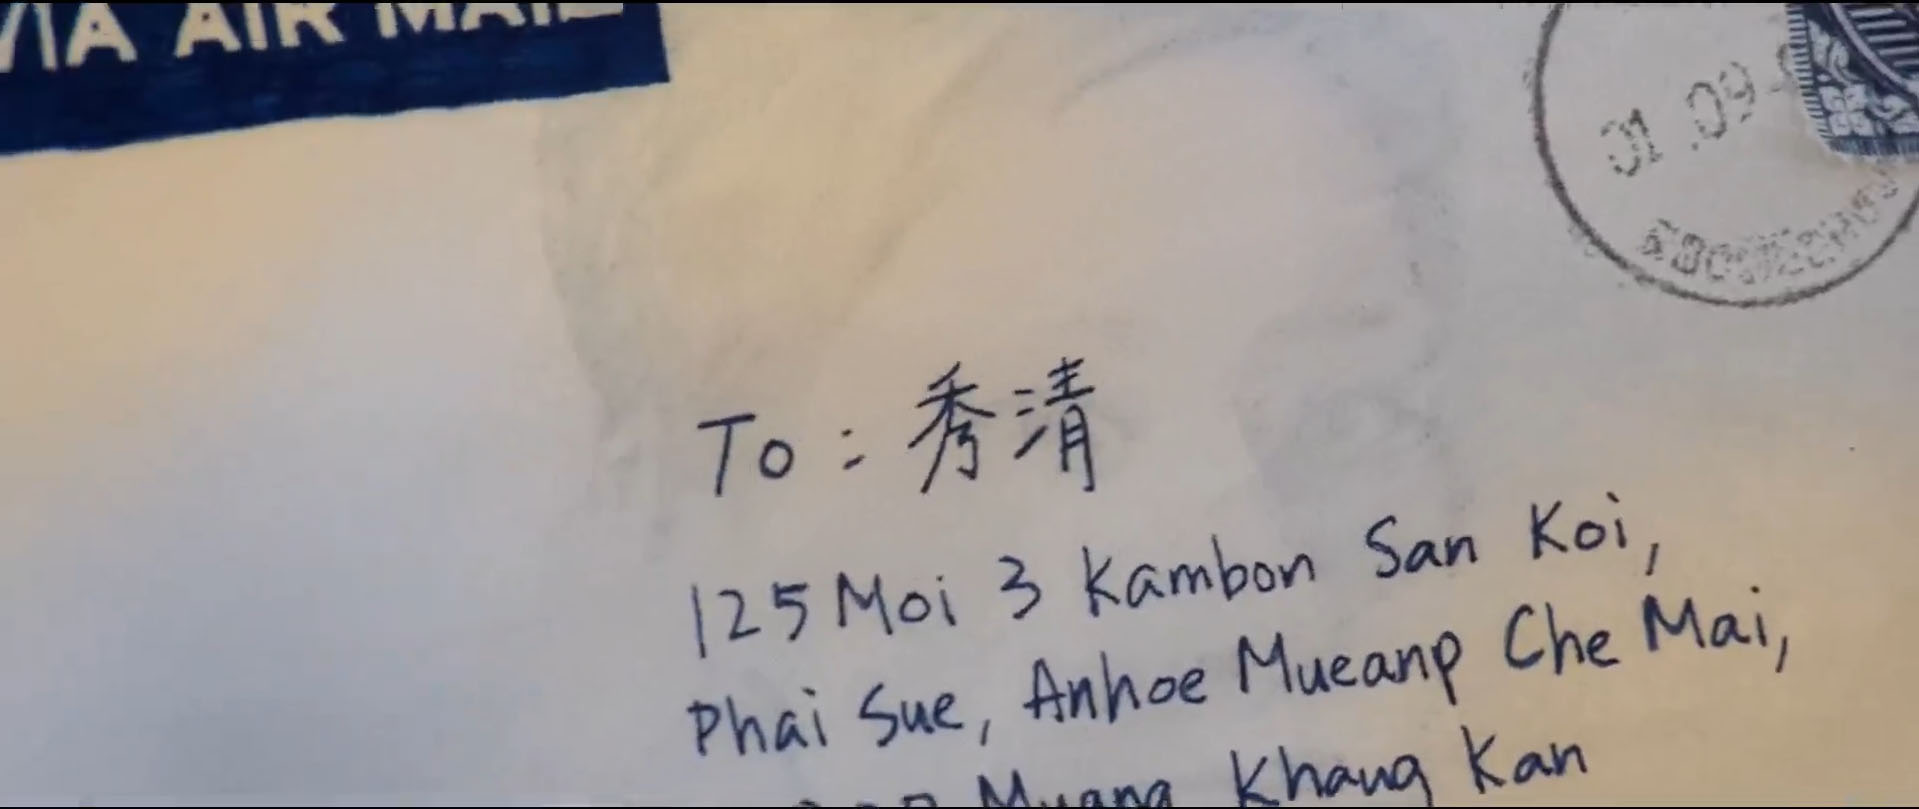 VIA AIR MAIL
01.09
To: 秀清
125 Moi 3 Kambon San Koi,
Phai Sue, Anhoe Mueanp Che Mai,
Muang Khaug Kan